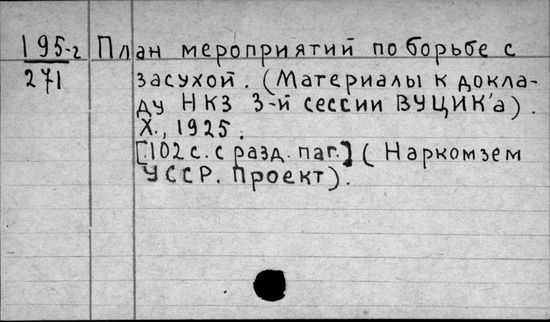 195-г План мероприятий по борьбе с
271 засухой. (Материалы к докла-
ду НКЗ 3-й сессии ВУЦИК'а).
Х., 1925.
[102 с. с разд. паг.] (Наркомзем
УССР. Проект).